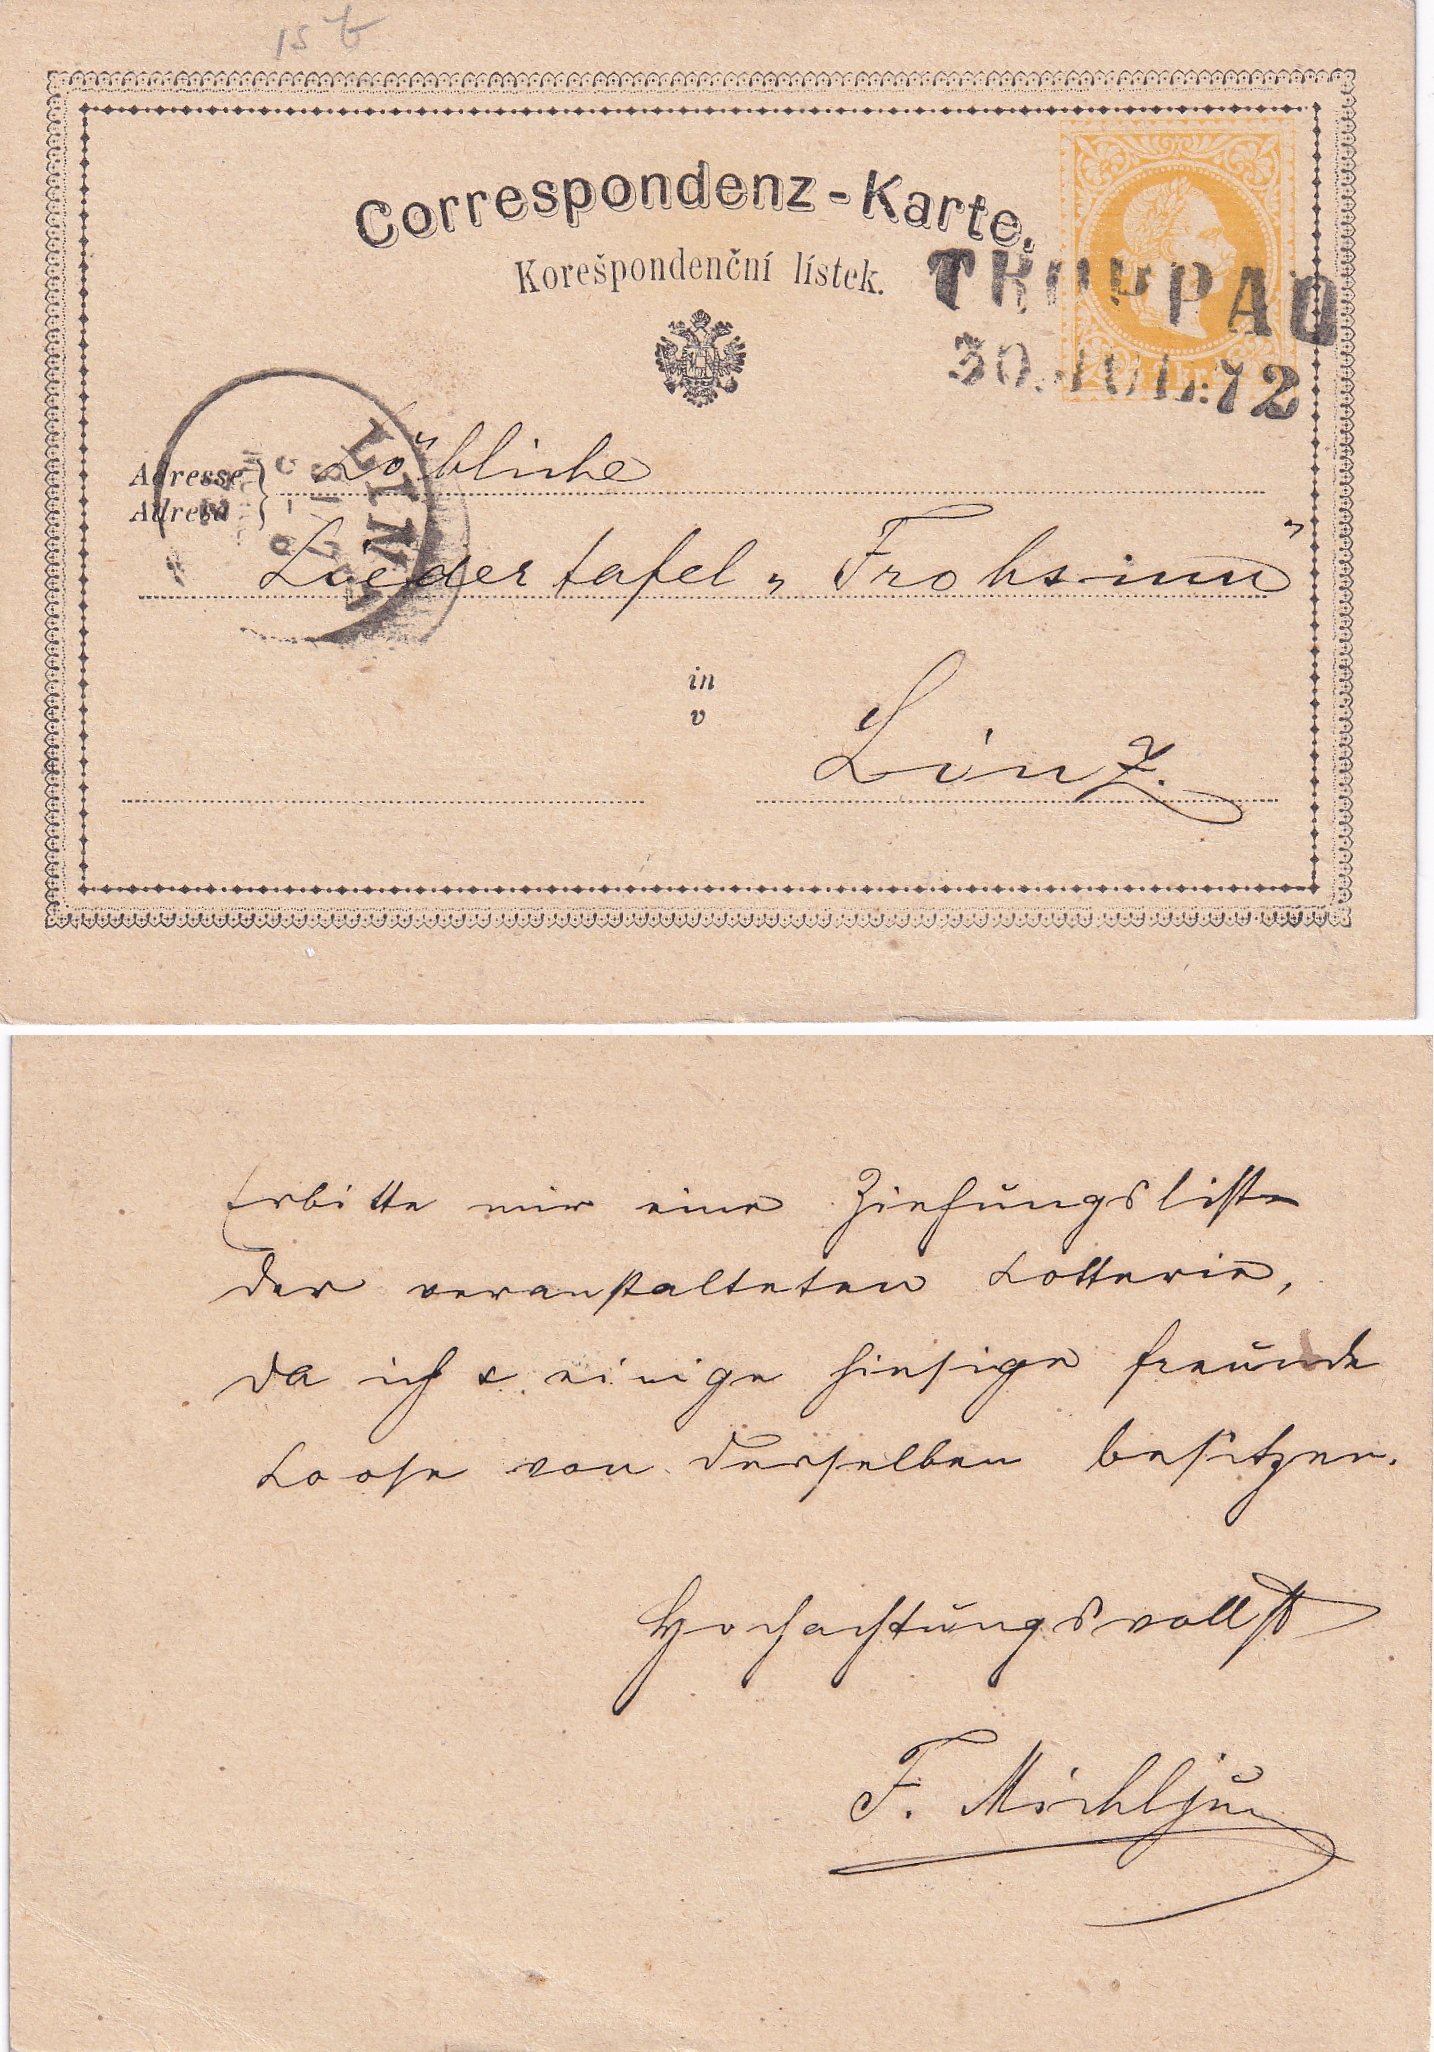 15 f
Correspondenz-Karte.
Korešpondenční lístek.
TROPPAU
30. JUL: 72
2 kr.
LINZ
Adresse
Adresa
Löbliche
Liedertafel „Frohsinn"
in
v
Linz.
Erbitte mir eine Ziehungsliste
der veranstalteten Lotterie,
da ich & einige hiesige Freunde
Loose von derselben besitzen.
Hochachtungsvollst
F. Michl jun